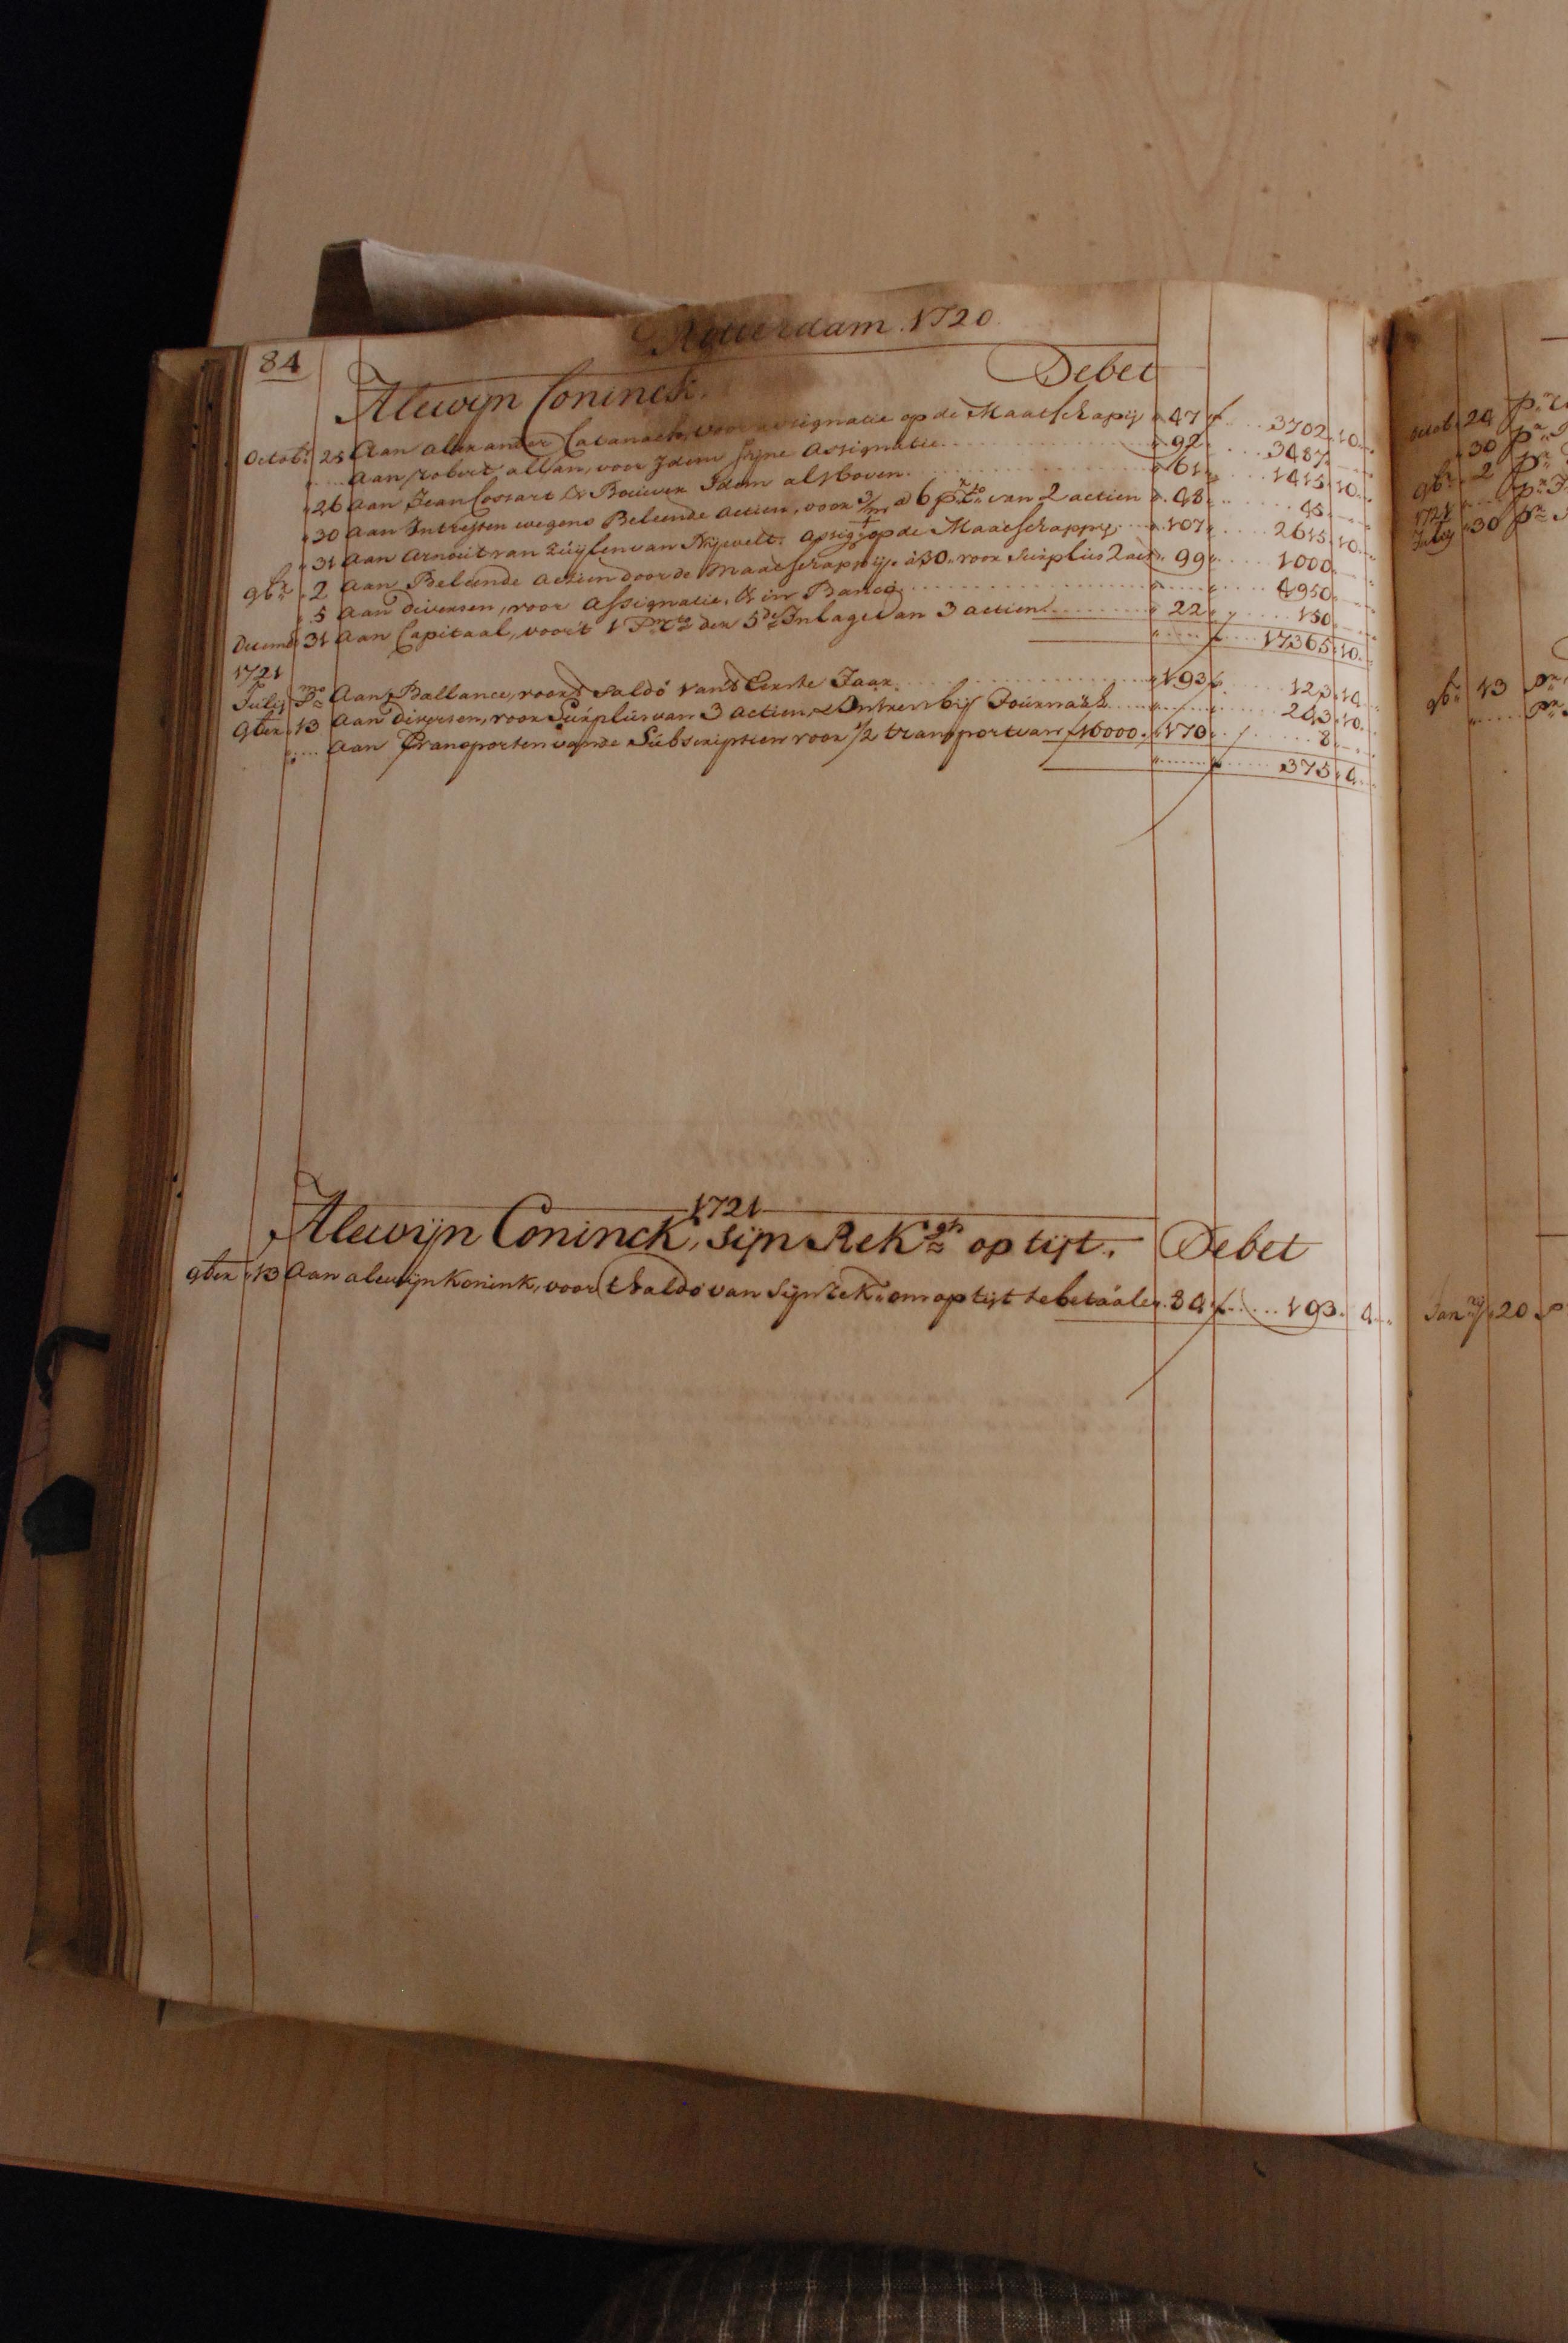 Rotterdam. 1720
84
Alewijn Coninck. Debet
Octob: 25 Aan Alexander Cavanach, voor assignatie op de Maatschapij 47 f 3702.10.
Aan Robert allan, voor Idem sijne Assignatie 92 3487.
26 Aan Jean Cossart & Bouwer Idem als boven. 61 1415.10.
30 Aan Intressen wegens Beleende Actien, voor 3/m a 6 p:r C:to van 2 actien 48 45.
31 Aan Arnout van Zuylen van Nijevelt. assig: op de Maatschappij 107 2615.10.
9b:r 2 Aan Beleende Actien door de Maatschappije à 50. voor Surplus 2 act: 99 1000.
5 Aan diversen, voor Assignatie, & in Banco 4950.
Decemb 31 Aan Capitaal, voor 't 1 P:r C:to der 5:de Inlage van 3 actien 22 150.
17365.10.
1721
Julij P:mo Aan Ballance, voor 't Saldo van 't Eerste Jaar. 193 f 123.14
9ber 13 Aan diversen, voor Surplus van 3 actien, & Intrest bij Journaal 243.10.
Aan Transporten vande Subscriptien voor 1/2 transport van f 16000. 170 8.
375.4.
1721
Alewijn Coninck, sijn Rek:gh op tijt. Debet
9ber 13 Aan alewijn Konink, voor t Saldo van Sijn Rek: om op tijt te betaalen. 84 f 193. 4
Octob: 24 P:r
30 P:r
9b:r 2 P:r
1721 P:r
July 30 P:r
9b:r 13 P:r
P:r
Jan:rij 20 P